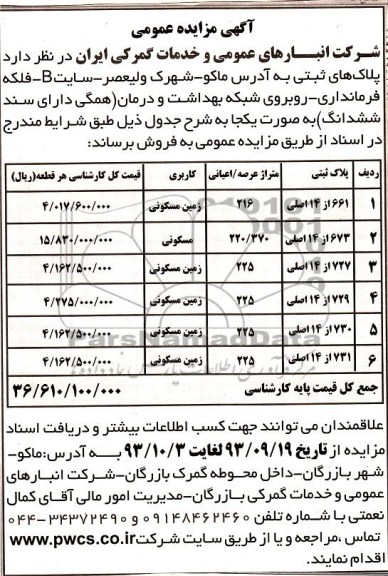 آگهی مزایده عمومی
شرکت انبارهای عمومی و خدمات گمرکی ایران در نظر دارد
پلاک‌های ثبتی به آدرس ماکو-شهرک ولیعصر-سایتB-فلکه
فرمانداری-روبروی شبکه بهداشت و درمان(همگی دارای سند
ششدانگ)به صورت یکجا به شرح جدول ذیل طبق شرایط مندرج
در اسناد از طریق مزایده عمومی به فروش برساند:
ردیف پلاک ثبتی متراژ عرصه/اعیانی کاربری قیمت کل کارشناسی هر قطعه(ریال)
۱ ۶۶۱از۱۴اصلی ۲۱۶ زمین مسکونی ۴/۰۱۷/۶۰۰/۰۰۰
۲ ۶۷۳از۱۴اصلی ۲۲۰/۳۷۰ مسکونی ۱۵/۸۳۰/۰۰۰/۰۰۰
۳ ۷۲۷از۱۴اصلی ۲۲۵ زمین مسکونی ۴/۱۶۲/۵۰۰/۰۰۰
۴ ۷۲۹از۱۴اصلی ۲۲۵ زمین مسکونی ۴/۲۷۵/۰۰۰/۰۰۰
۵ ۷۳۰از۱۴اصلی ۲۲۵ زمین مسکونی ۴/۱۶۲/۵۰۰/۰۰۰
۶ ۷۳۱از۱۴اصلی ۲۲۵ زمین مسکونی ۴/۱۶۲/۵۰۰/۰۰۰
جمع کل قیمت پایه کارشناسی ۳۶/۶۱۰/۱۰۰/۰۰۰
علاقمندان می توانند جهت کسب اطلاعات بیشتر و دریافت اسناد
مزایده از تاریخ ۹۳/۰۹/۱۹ لغایت ۹۳/۱۰/۳ به آدرس:ماکو-
شهر بازرگان-داخل محوطه گمرک بازرگان-شرکت انبارهای
عمومی و خدمات گمرکی بازرگان-مدیریت امور مالی آقای کمال
نعمتی با شماره تلفن ۰۹۱۴۸۴۶۲۴۶۰ و ۳۴۳۷۲۴۹۰-۰۴۴
تماس ،مراجعه و یا از طریق سایت شرکتwww.pwcs.co.ir
اقدام نمایند.